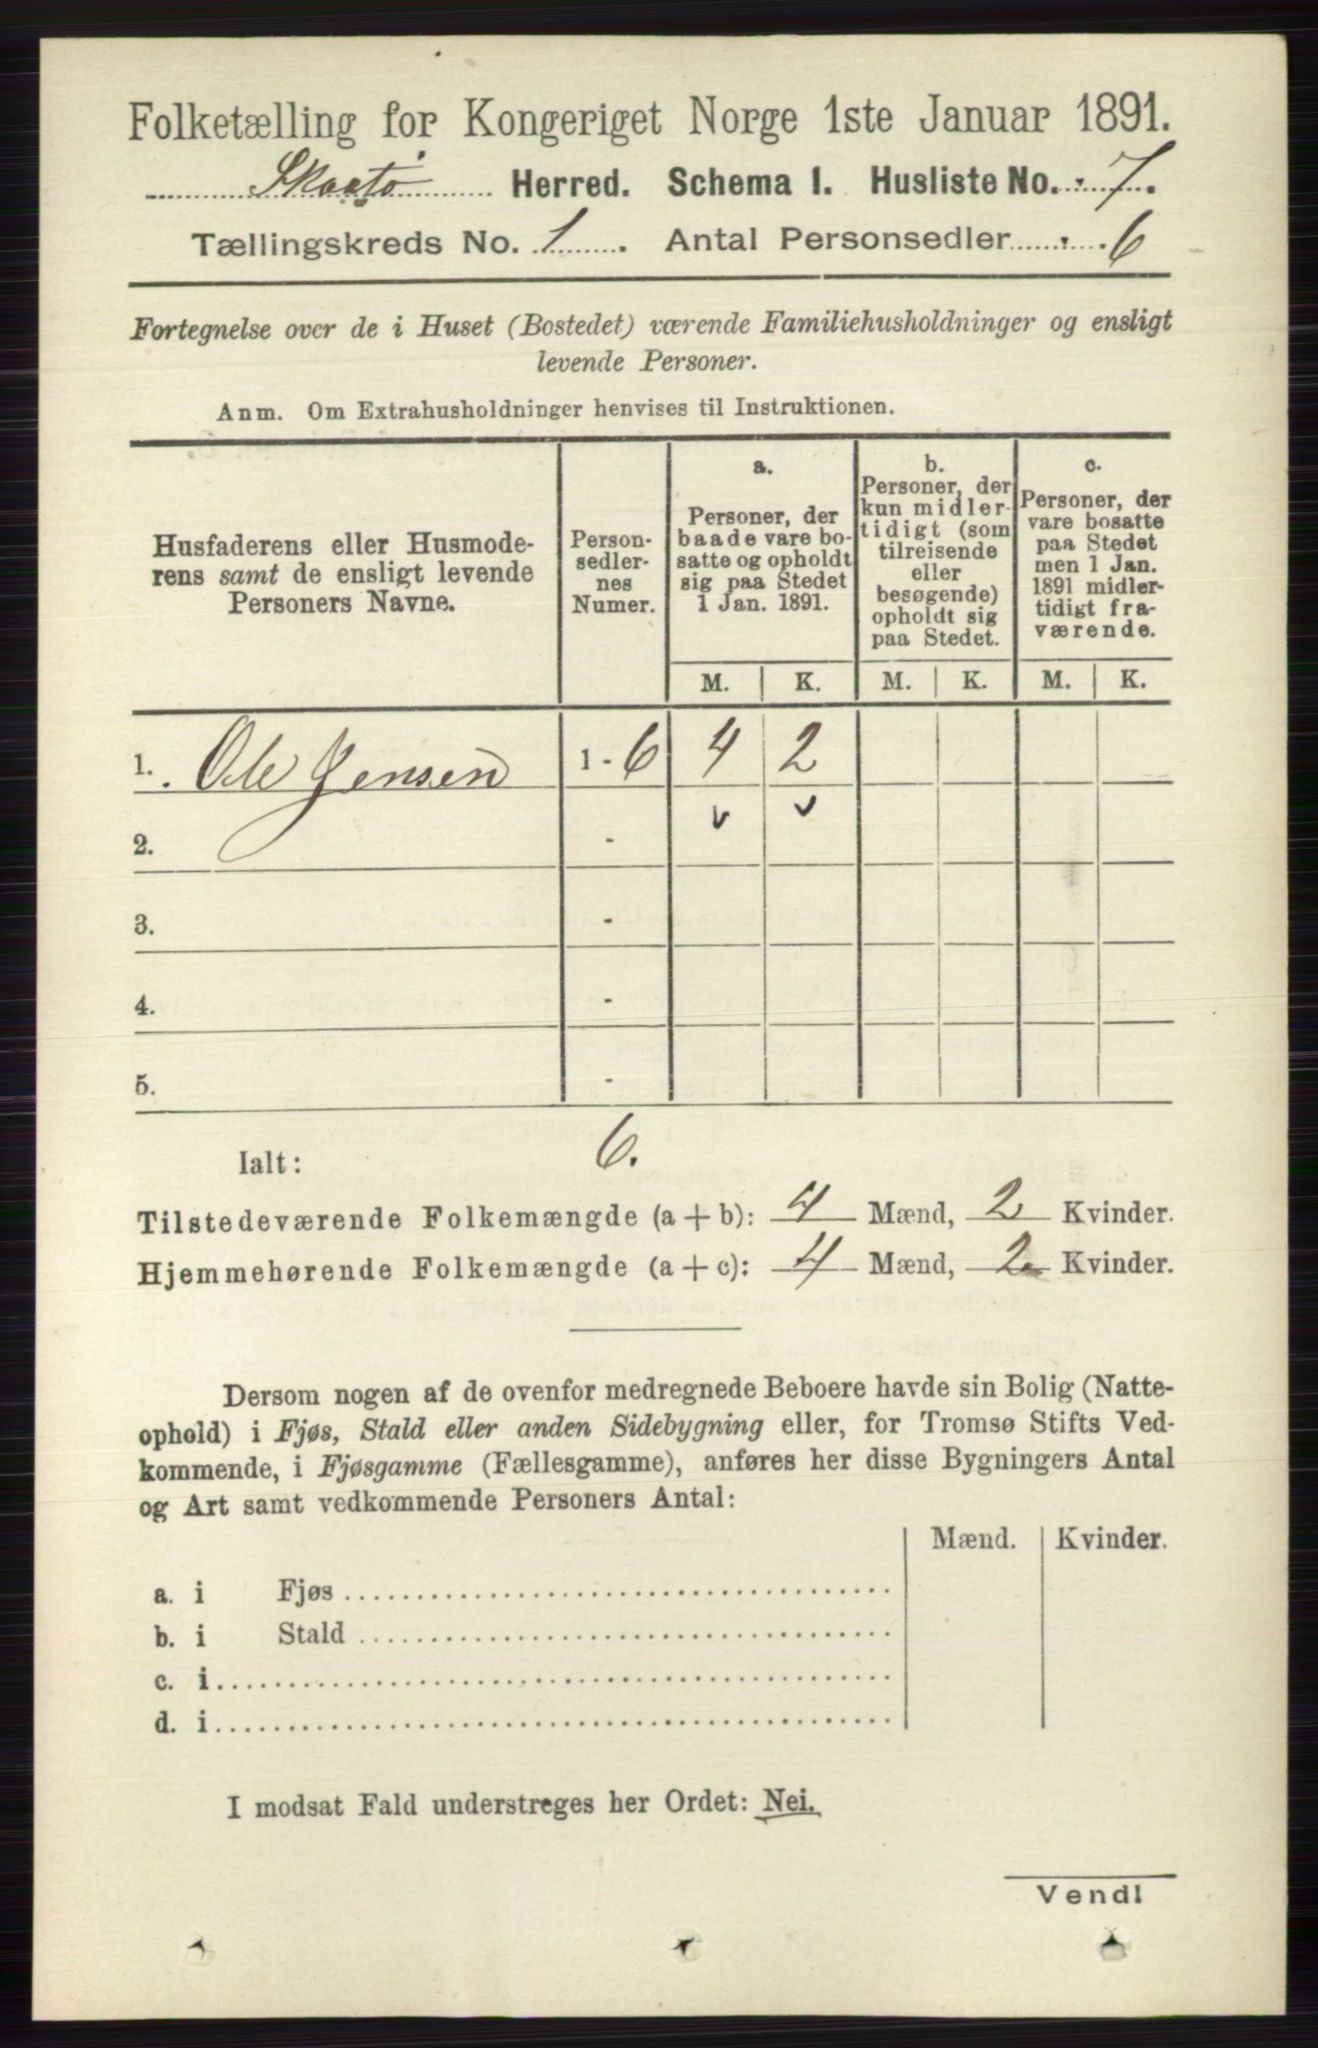 Folketælling for Kongeriget Norge 1ste Januar 1891.
Skaatø Herred. Schema I. Husliste No. 7.
Tællingskreds No. 1. Antal Personsedler 6
Fortegnelse over de i Huset (Bostedet) værende Familiehusholdninger og ensligt
levende Personer.
Anm. Om Extrahusholdninger henvises til Instruktionen.
Husfaderens eller Husmode-
rens samt de ensligt levende
Personers Navne.
Person-
sedler-
nes
Numer.
a.
Personer, der
baade vare bo-
satte og opholdt
sig paa Stedet
1 Jan. 1891.
b.
Personer, der
kun midler-
tidigt (som
tilreisende
eller
besøgende)
opholdt sig
paa Stedet.
c.
Personer, der
vare bosatte
paa Stedet
men 1 Jan.
1891 midler-
tidigt fra-
værende.
M. K. M. K. M. K.
1. Ole Jensen 1 - 6 4 2
2. -
3. -
4. -
5. -
Ialt: 6.
Tilstedeværende Folkemængde (a + b): 4 Mænd, 2 Kvinder.
Hjemmehørende Folkemængde (a + c): 4 Mænd, 2 Kvinder.
Dersom nogen af de ovenfor medregnede Beboere havde sin Bolig (Natte-
ophold) i Fjøs, Stald eller anden Sidebygning eller, for Tromsø Stifts Ved-
kommende, i Fjøsgamme (Fællesgamme), anføres her disse Bygningers Antal
og Art samt vedkommende Personers Antal:
Mænd. Kvinder.
a. i Fjøs
b. i Stald
c. i
d. i
I modsat Fald understreges her Ordet: Nei.
Vendl